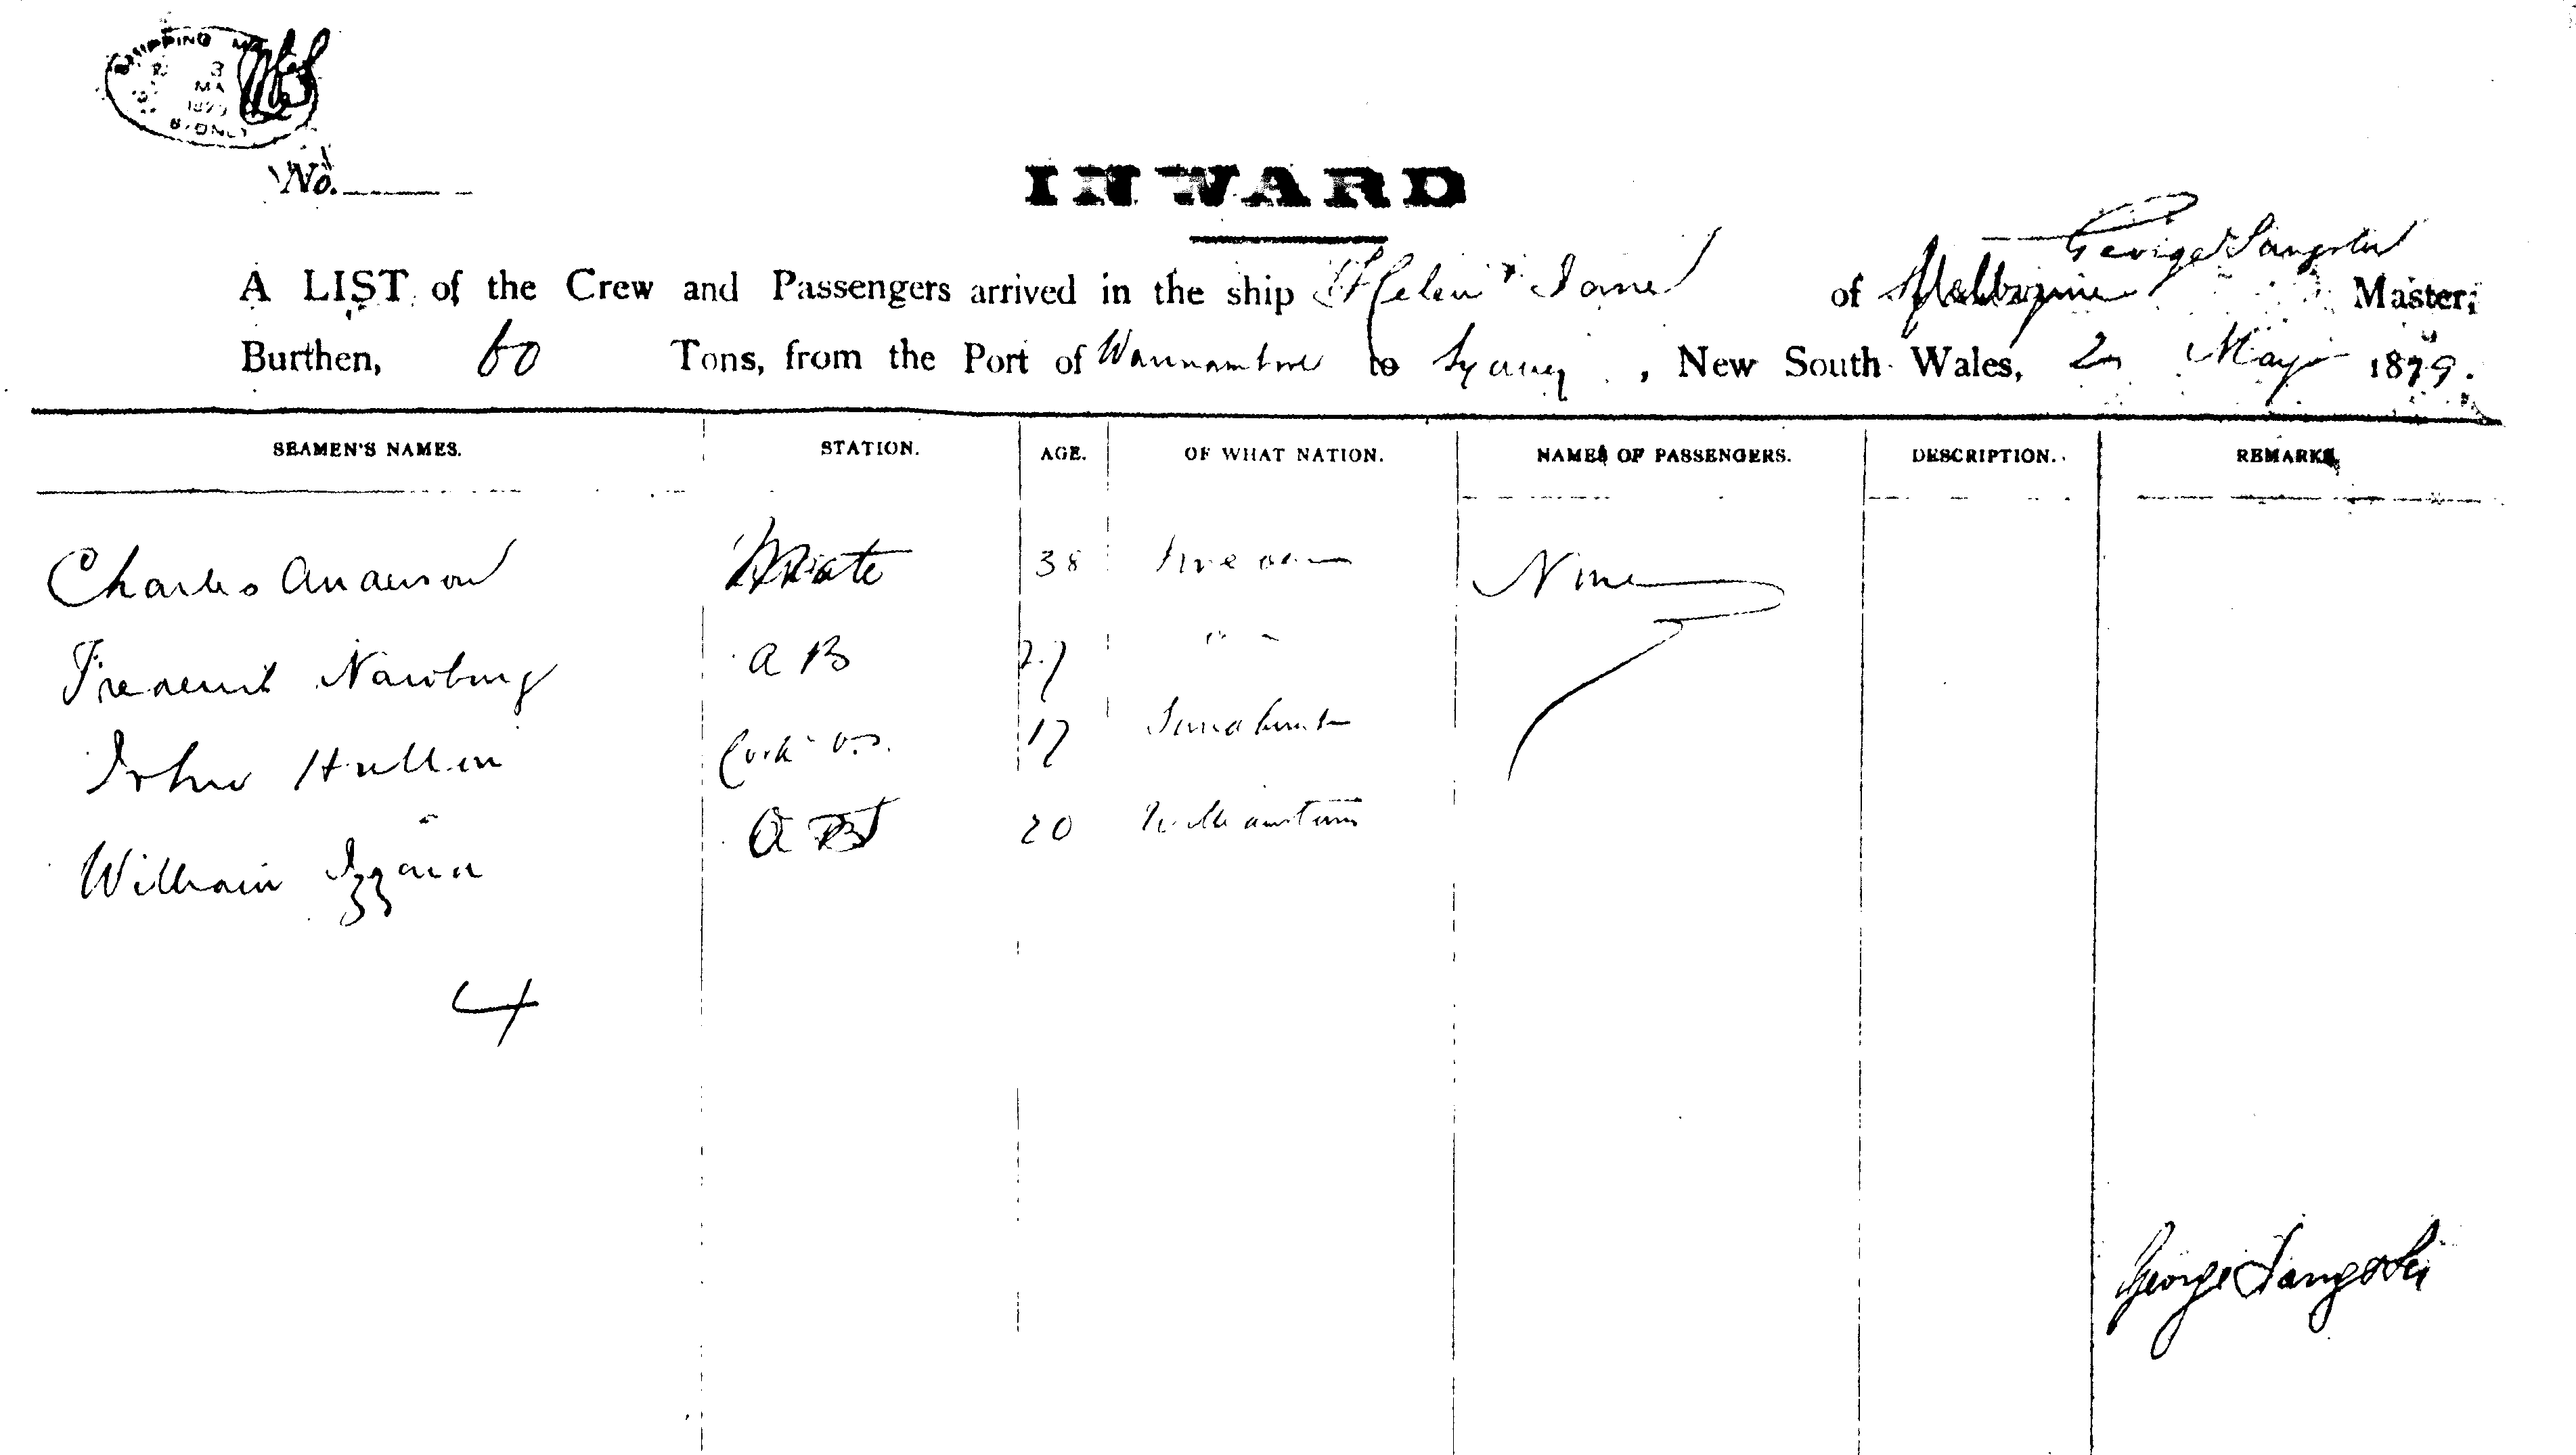 SHIPPING MA
3
MA
1879
SYDNEY
No.
INWARD
George Sangster
A LIST of the Crew and Passengers arrived in the ship Helen & Jane of Melbourne Master,
Burthen, 60 Tons, from the Port of Warrnambool to Sydney, New South Wales, 2 May 1879.
SEAMEN'S NAMES. STATION. AGE. OF WHAT NATION. NAMES OF PASSENGERS. DESCRIPTION. REMARKS
Charles Anderson Mate 38 Sweden None
Frederick A B 27 " "
John Hullin Cook O.S. 17
William A B 20 Williamstown
4
George Sangster